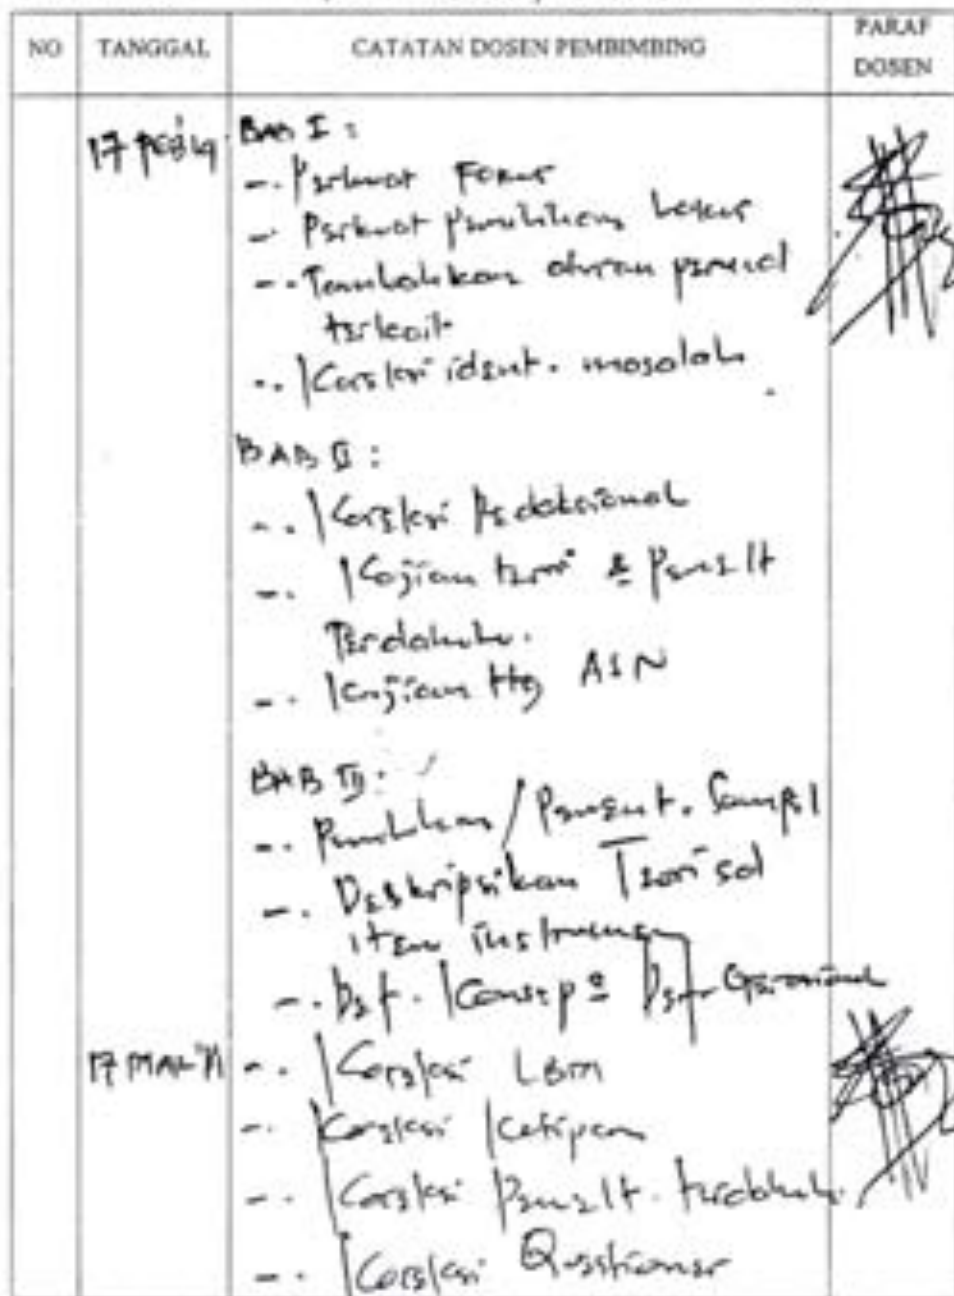 NO TANGGAL CATATAN DOSEN PEMBIMBING PARAF DOSEN
BAB I :
-. Perkuat Fokus
-. Perkuat Pemilihan Lokus
-. Tambahkan aturan
terkait
-. Koreksi ident. masalah
BAB II :
-. Koreksi Redaksional
-. Kajian teori & Penelt
Terdahulu.
-. Kajian ttg ASN
BAB III :
-. Pemilihan / Penent. Sampel
-. Deskripsikan
item instrumen
-. Def. Konsep & Def. Operasional
17 MAR -. Koreksi LBM
-. Koreksi Kutipan
-. Koreksi Penelt. terdahulu
-. Koreksi Questioner